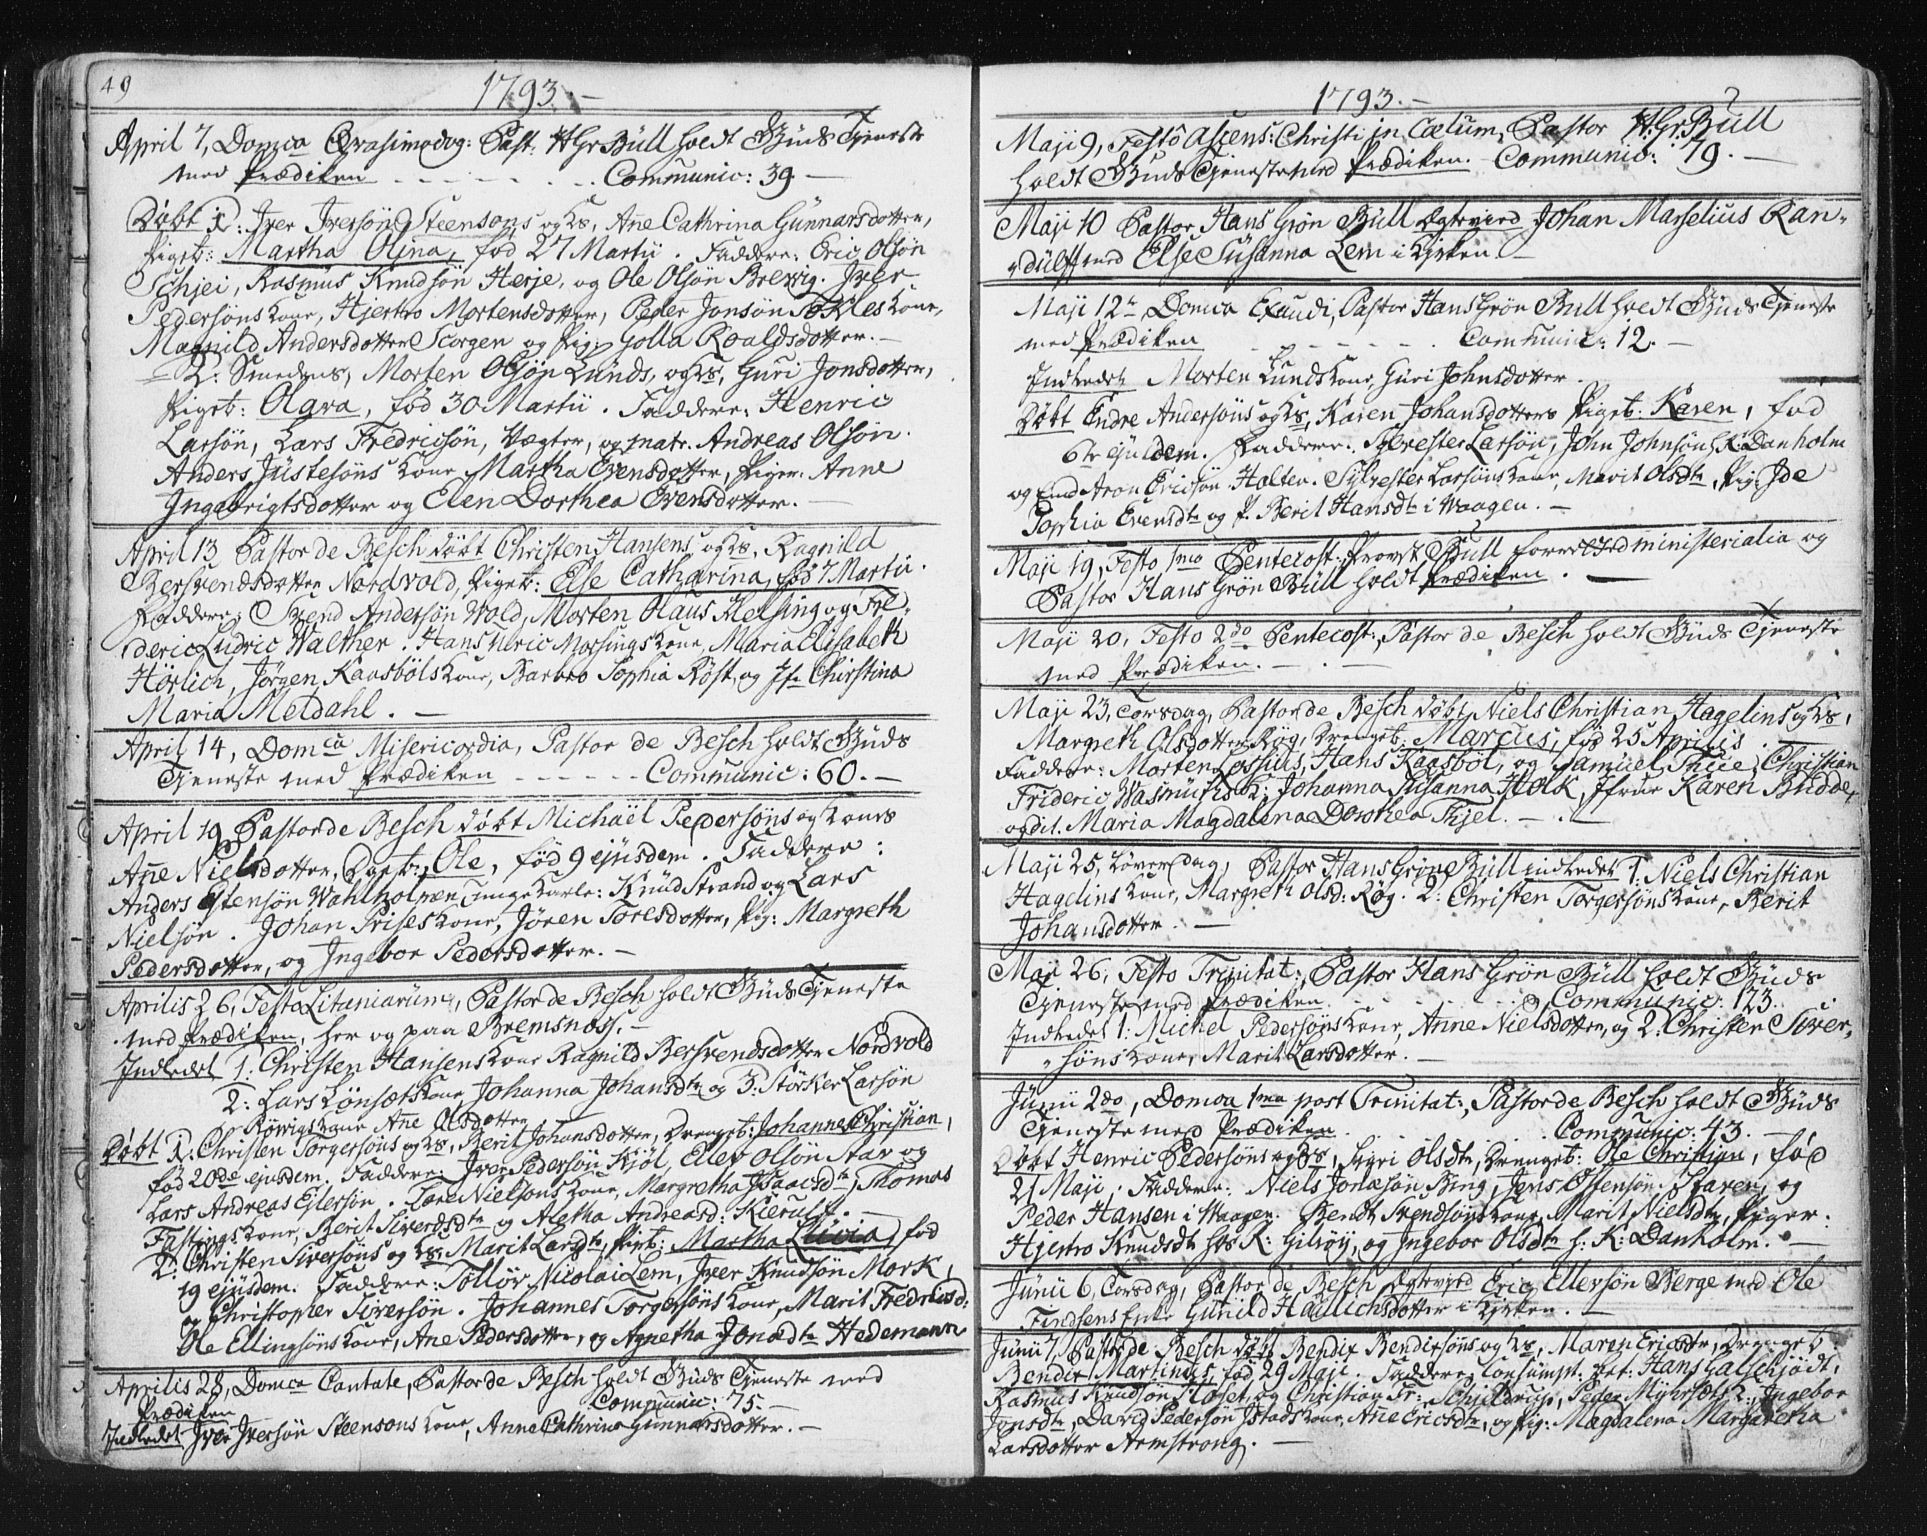 49
1793.—
April 7, Domca Qvasimodog: Past. H Gr Büll holdt Gúds Tjeneste
med Prædiken - - - - - - Communic: 39 —
Döbt 1: Iver Iversön Steensons og Ks, Añe Cathrina Gúnnarsdotter,
Pigeb: Martha Olina, föd 27 Martii. Faddere: Eric Olsön
Schjei, Rasmus Knudsön Herje, og Ole Olsön Brevig. Iver
Pedersöns Kone, Hjertro Mortensdotter, Peder Jonsön Kone,
Magnild Andersdotter Scorgen og Pig: Golla Roaldsdotter.—
2: Smedens, Morten Olsön Lúnds, og Ks, Guri Jonsdotter,
Pigeb: Olava, föd 30 Martii. Faddere: Henric
Larsön, Lars Fredricsön, Vægter, og matr. Andreas Olsön.
Anders Jústesöns Kone Martha Evensdotter, Piger: Anne
Ingebrigtsdotter og Elen Dorthea Evensdotter. —
April 13 Pastor de Besch döbt Christen Hansens og Ks, Ragnild
Bersvendsdotter Nordvold, Pigeb: Else Catharina, föd 7 Martii.
Faddere: Svend Andersön Wold, Morten Claus Helsing og Fre-
deric Ludvic Walther. Hans Ulric Morsings Kone, Maria Elisabeth
Hörlich, Jörgen Kaasböls Kone, Barbro Sophia Röst, og Jfr Christina
Maria Metdahl. —
April 14, Domca Misericordia, Pastor de Besch holdt Gúds
Tjeneste med Prædiken - - - - - - Communic: 60. —
April 19 Pastor de Besch döbt Michaël Pedersöns og Kones
Añe Nielsdotter, Drengeb: Ole, föd 9 ejusdem. Faddere:
Anders Estensön Wahlholmen Unge Karle: Knúd Strand og Lars
Nielsön. Johan Prises Kone, Jören Torlesdotter, Pig: Margreth
Pedersdotter, og Ingebor Pedersdotter. —
Aprilis 26, Festo Litaniarúm, Pastor de Besch holdt Gúds Tjeneste
med Prædiken, her og paa Bremsness. —
Indledet 1: Christen Hansens Kone Ragnild Bersvendsdotter Nordvold
2: Lars Lönsets Kone Johanna Johansdtr og 3: Störker Larsön
Röwigs Kone Ane Olsdotter
Döbt 1: Christen Torgersöns og Ks, Berit Johansdotter, Drengeb: Johannes Christian,
föd 20de ejusdem. Faddere: Iver Pedersön Kjöl, Elev Olsön Stav og
Lars Andreas Ejlersön. Tore Nielsöns Kone, Margretha Isaacsdtr, Thomas
Fastings Kone, Berit Siverdsdtr og Aletha Andreasd: Kierulf. —
2: Christen Siversöns og Ks: Marit Larsdtr, Pigeb: Martha Livia, föd
19 ejusdem. Faddere: Tollöv Nicolai Lem, Iver Knudsön Mork,
og Christopher Siversön. Johannes Torgersöns Kone, Marit Fredricsd.
Ole Ellingsöns Kone, Ane Pedersdotter, og Agnetha Jonædtr Hedemann
Aprilis 28, Domca Cantate, Pastor de Besch holdt Gúds Tjeneste med
Prædiken Communic: 75. —
Indledet Iver Iversön Steensons Kone, Anne Cathrina Gúnnarsdotter. —
1793. —
Maji 9, Festo Ascens: Christi in Cælum, Pastor H: Gr: Büll
holdt Gúds Tjeneste med Prædiken. Communic: 79. —
Maji 10 Pastor Hans Grön Büll Egteviid Johan Marselius Ran-
dulff med Else Súsanna Lem i Kjrken. —
Maji 12te Domca Exaudi, Pastor Hans Grön Büll holdt Gúds Tjeneste
med Prædiken - - - - - - Communic: 12. —
Indledet Morten Lunds Kone, Guri Johnsdotter.
Döbt Endre Andersöns og Ks, Karen Johansdotters Pigeb: Karen, föd
6te ejusdem. Faddere: Sylvester Larsön, John Johnsön H: K: Danholm
og Emd Aron Ericsön Holten. Sylvester Larsöns Kone, Marit Olsdtr, Pig: Ide
Sophia Evensdtr og P. Berit Hansdtr i Waagen. —
Maji 19, Festo 1mo Pentecost: Provst Büll forrettet ministerialia og
Pastor Hans Grön Büll holdt Prædiken. —
Maji 20, Festo 2do Pentecost:, Pastor de Besch holdt Gúds Tjeneste
med Prædiken. —
Maji 23, Torsdag, Pastor de Besch döbt Niels Christian Hagelins og Ks,
Margreth Olsdotter Rög, Drengeb: Marcus, föd 25 Aprilis.
Faddere: Morten Lossius, Hans Kaasböl, og Samuel Thue, Christian
Frideric Wasmuths K: Johanna Susanna Holk, Jfrue Karen Budde,
og dit. Maria Magdalena Dorothea Thjel. —
Maji 25, Löverdag, Pastor Hans Gröne Büll indledet 1: Niels Christian
Hagelins Kone, Margreth Olsd: Rög. 2: Christen Torgersöns Kone, Berit
Johansdotter. —
Maji 26, Festo Trinitat:, Pastor Hans Grön Büll holdt Gúds
Tjeneste med Prædiken - - - - - Communic: 173.
Indledet 1: Michel Pedersöns Kone, Anne Nielsdotter, og 2: Christen Siver-
söns Kone, Marit Larsdotter. —
Junii 2do, Domca 1ma post Trinitat:, Pastor de Besch holdt Gúds
Tjeneste med Prædiken. Communic: 43. —
Döbt Henric Pedersöns og Ks, Siyri Olsdtr, Drengeb: Ole Christian, föd
21 Maji. Faddere: Niels Jonæsön Bing, Jens Ostensön, og
Peder Hansen i Waagen. Bendt Svendsöns Kone, Marit Nielsdtr, Piger:
Hjertro Knudsdtr hos K: Gilröy, og Ingebor Olsdtr h: K: Danholm. —
Junii 6, Torsdag, Pastor de Besch Egteviid Eric Ellevsön Berge med Ole
Findsens Enke Gunild Hallichsdotter i Kjrken. —
Junii 7, Pastor de Besch döbt Bendix Bendixsöns og Ks, Maren Ericsdtr, Drengeb:
Bendix Martinus, föd 29 Maji. Faddere: Consumpt: Bet: Hans Gatschjödt,
Rasmus Knudsön Flöset, og Christian Fr: Schjelderup, Peder Myhrsets K: Ingebor
Jonsdtr, David Pedersön Istads Kone, Añe Ericsdtr, og Pig: Magdalena Margaretha
Larsdotter Armstrong. —